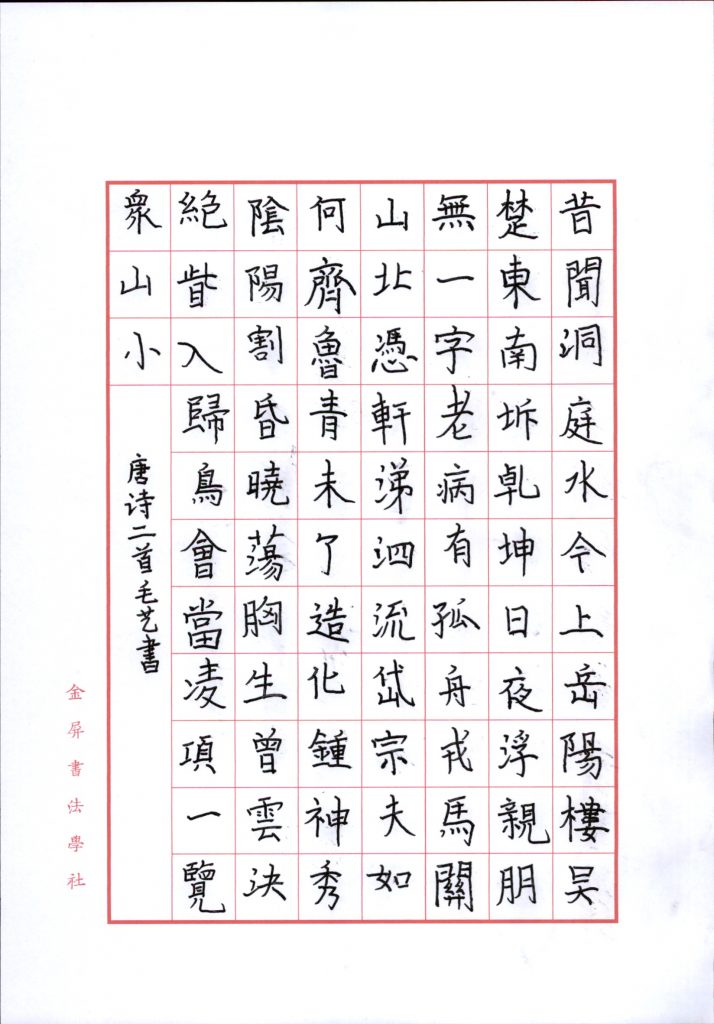 昔聞洞庭水今上岳陽樓吴
楚東南坼乹坤日夜浮親朋
無一字老病有孤舟戎馬關
山北憑軒涕泗流岱宗夫如
何齊魯青未了造化鍾神秀
陰陽割昏曉蕩胸生曾雲決
絶眥入歸鳥會當凌項一覽
眾山小
唐诗二首毛艺書
金屏書法學社